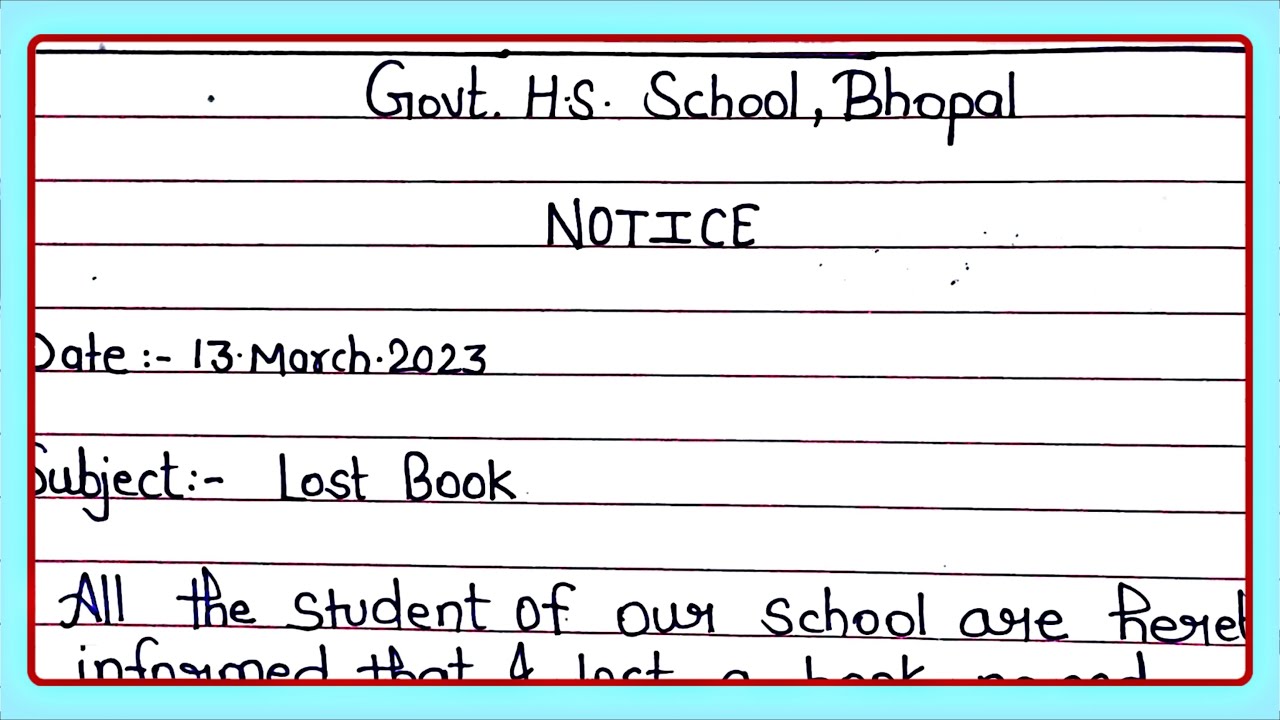 Govt. H.S. School, Bhopal
NOTICE
Date :- 13.March.2023
Subject:- Lost Book
All the student of our school are hereb
informed that I lost a book named